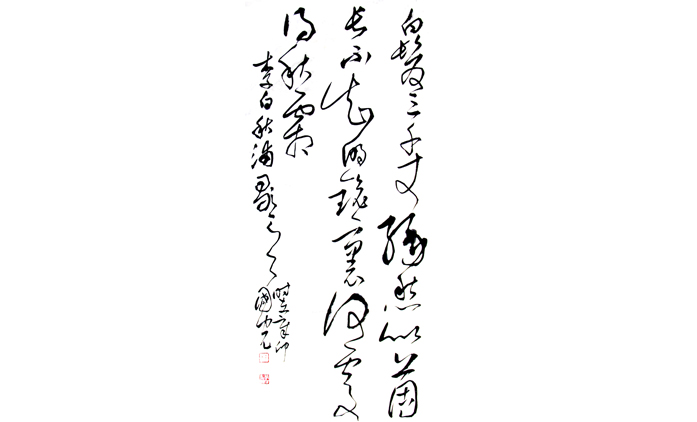 白髮三千丈緣愁似箇
長不知明鏡裏何處
得秋霜
李白秋浦歌